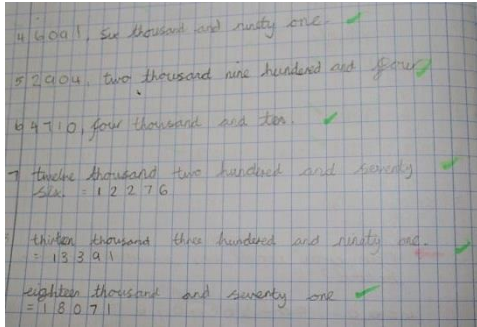 4 6091, six thousand and ninety one.
5 2904, two thousand nine hundered and four
6 4710, four thousand and ten.
7 twelve thousand two hundred and seventy
six. = 12276
thirteen thousand three hundered and ninety one.
= 13391
eighteen thousand and seventy one
= 18071